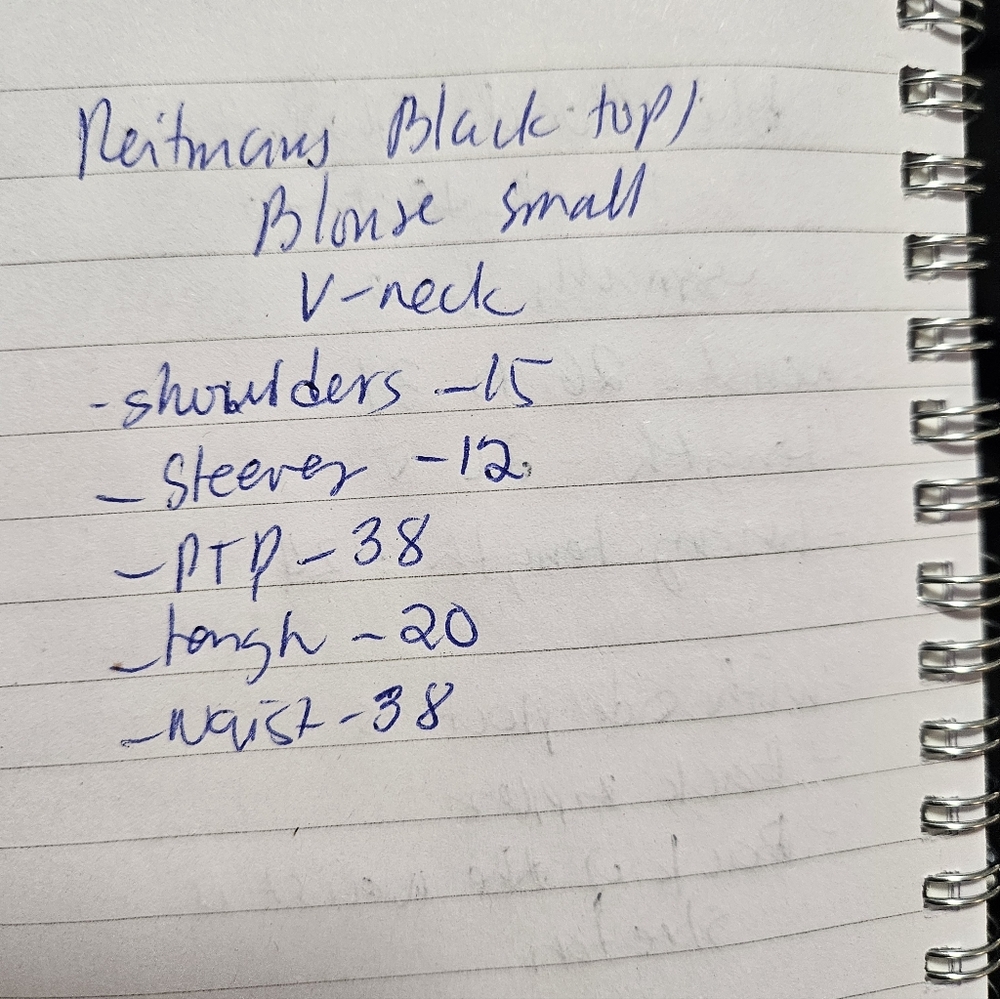 Reitmans Black top/
Blouse small
V-neck
- shoulders - 15
- Sleeves - 12
- PTP - 38
- lengh - 20
- waist - 38